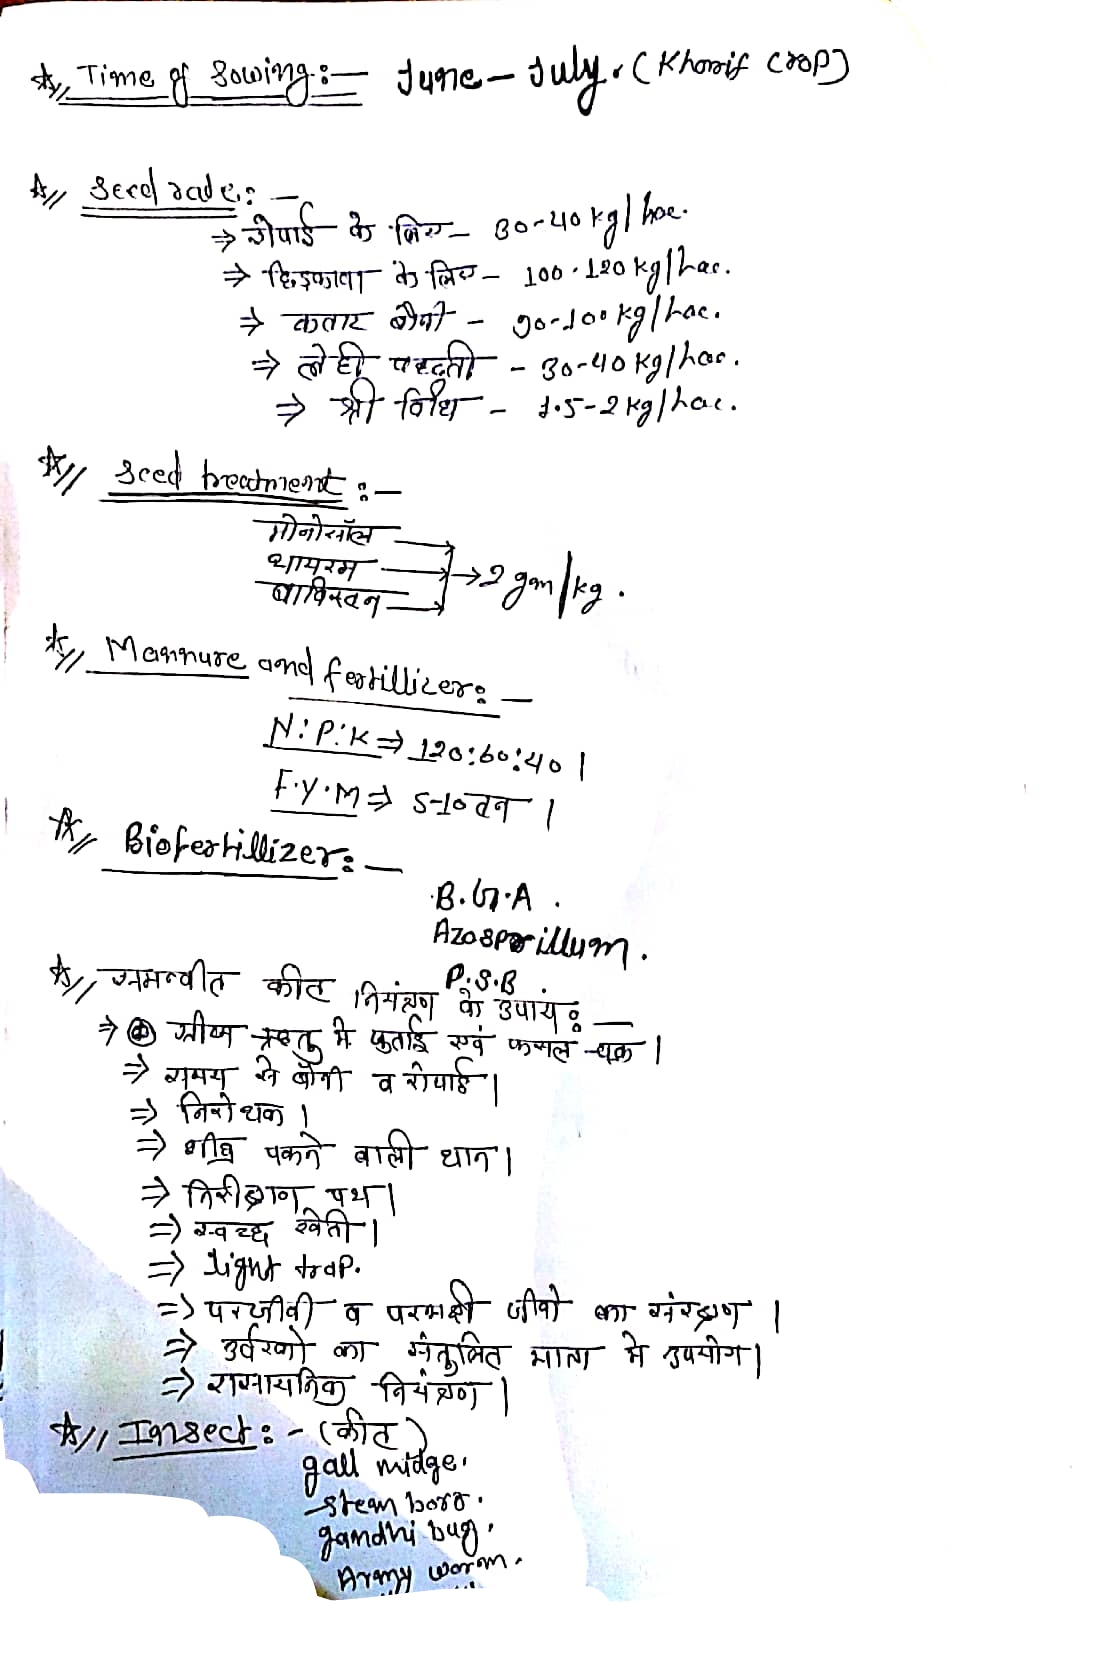 Time of Sowing :— June – July. (Kharif crop)
Seed rate :—
⇒ रोपाई के लिए – 30-40 kg/hac.
⇒ छिड़कावा के लिए – 100-120 kg/hac.
⇒ कतार बोनी – 90-100 kg/hac.
⇒ लेही पद्धती – 30-40 kg/hac.
⇒ श्री विधि – 1.5-2 kg/hac.
Seed treatment :—
मोनोसॉल
थायरम → 2 gm/kg.
बाविस्तन
Mannure and fertillizer :—
N:P:K ⇒ 120:60:40 |
F.Y.M ⇒ 5-10 टन |
Biofertillizer :—
B.G.A.
Azosperillum.
P.S.B.
समन्वीत कीट नियंत्रण के उपाय :—
⇒ ग्रीष्म ऋतु मे जुताई एवं फसल चक्र |
⇒ समय से बोनी व रोपाई |
⇒ निरोधक |
⇒ शीघ्र पकने वाली धान |
⇒ निरीक्षण पथ |
⇒ स्वच्छ खेती |
⇒ light trap.
⇒ परजीवी व परभक्षी जीवो का संरक्षण |
⇒ उर्वरको का संतुलित मात्रा मे उपयोग |
⇒ रासायनिक नियंत्रण |
Insect :- (कीट)
gall midge.
stem boro.
gandhi bug.
Army worm.